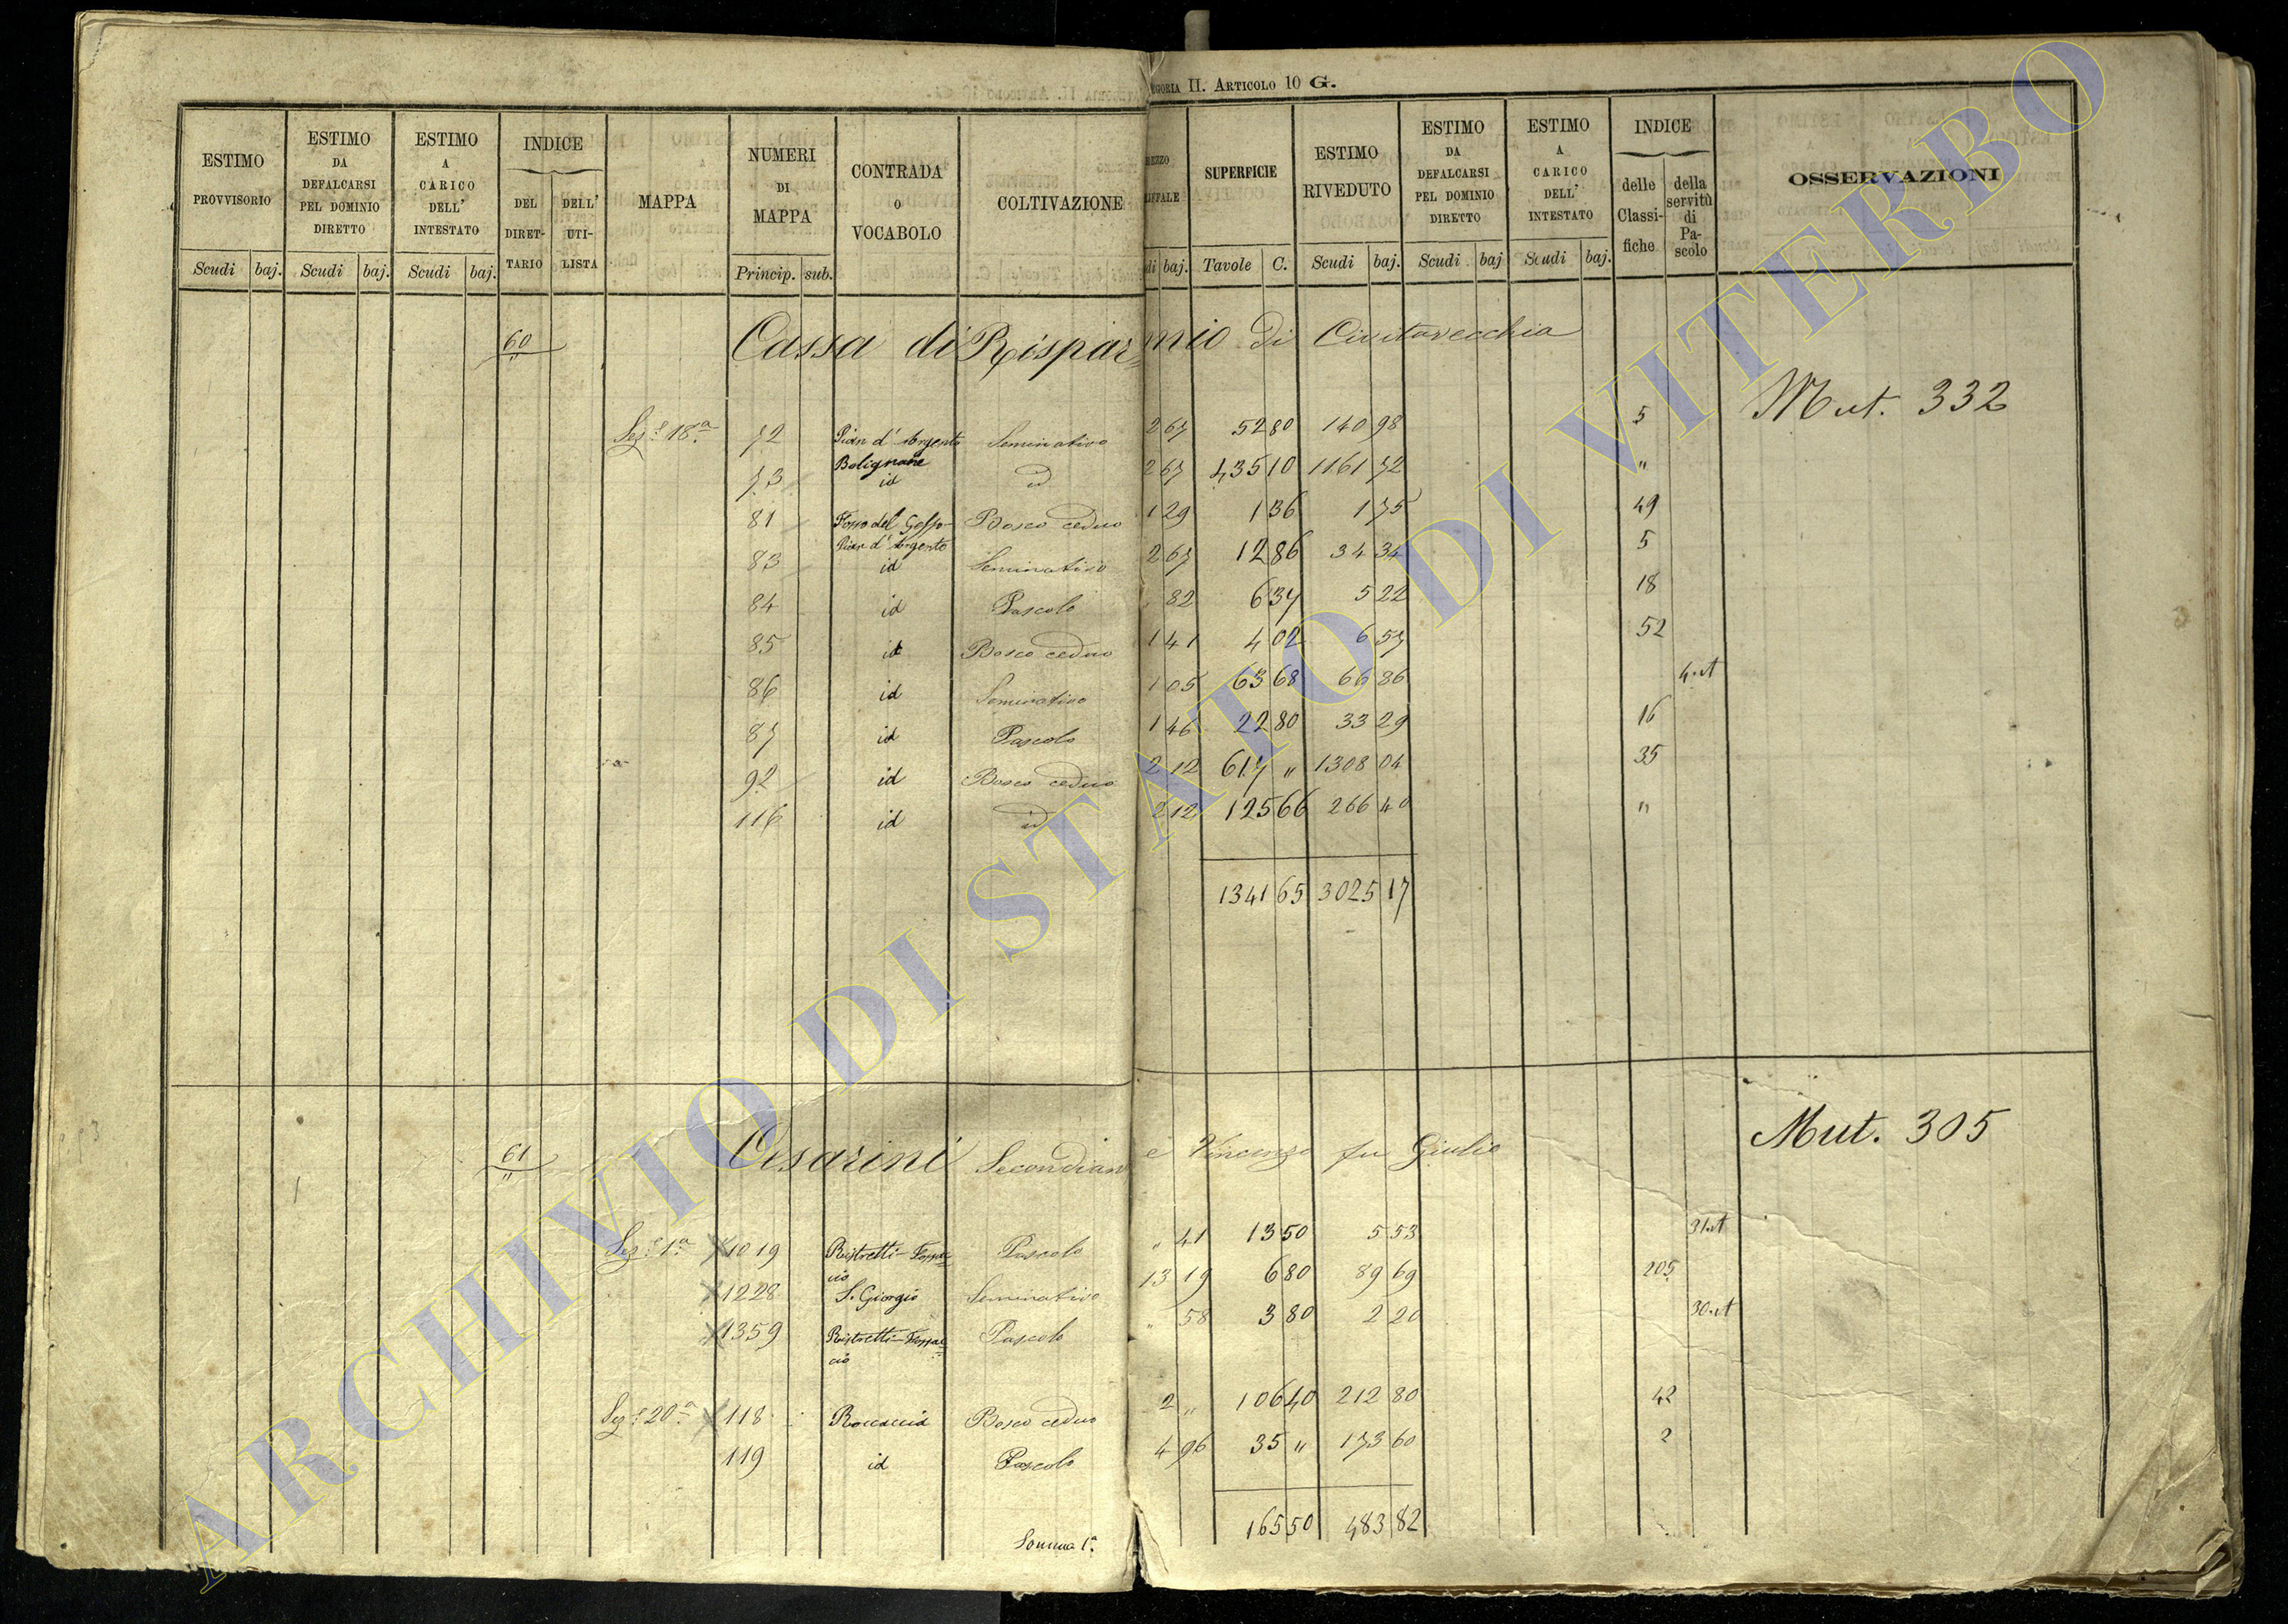 egoria II. Articolo 10 G.
ESTIMO PROVVISORIO
Scudi baj.
ESTIMO DA DEFALCARSI PEL DOMINIO DIRETTO
Scudi baj.
ESTIMO A CARICO DELL' INTESTATO
Scudi baj.
INDICE
DEL DIRET-TARIO
DELL' UTI-LISTA
MAPPA
NUMERI DI MAPPA
Princip. sub.
CONTRADA O VOCABOLO
COLTIVAZIONE
REZZO
IFFALE
di baj.
SUPERFICIE
Tavole C.
ESTIMO RIVEDUTO
Scudi baj.
ESTIMO DA DEFALCARSI PEL DOMINIO DIRETTO
Scudi baj
ESTIMO A CARICO DELL' INTESTATO
Scudi baj.
INDICE
delle Classi-fiche
della servitù di Pa-scolo
OSSERVAZIONI
60 Cassa di Rispar=mio di Civitavecchia
Mut. 332
Sez.e 18.a 72 Pian d'Argento Seminativo 2 67 52 80 140 98 5
Bolignane
73 id id 2 67 435 10 1161 72 "
81 Fosso del Gesso- Bosco ceduo 1 29 1 36 1 75 49
Pian d'Argento
83 id Seminativo 2 67 12 86 34 34 5
84 id Pascolo " 82 6 37 5 22 18
85 id Bosco ceduo 1 41 4 02 6 57 52
86 id Seminativo 1 05 63 68 66 86 4.at
87 id Pascolo 1 46 22 80 33 29 16
92 id Bosco ceduo 2 12 617 " 1308 04 35
116 id id 2 12 125 66 266 40 "
1341 65 3025 17
61 Cesarini Secondian e Vincenzo fu Giulio
Mut. 305
Sez.e 1.a 1019 Ristretti-Fossac= Pascolo " 41 13 50 5 53 31.at
cio
1228 S. Giorgio Seminativo 13 19 6 80 89 69 205
1359 Ristretti-Fossac= Pascolo " 58 3 80 2 20 30.at
cio
Sez.e 20.a 118 Roccaccia Bosco ceduo 2 " 106 40 212 80 42
119 id Pascolo 4 96 35 " 173 60 2
165 50 483 82
Somma 1.a
ARCHIVIO DI STATO DI VITERBO